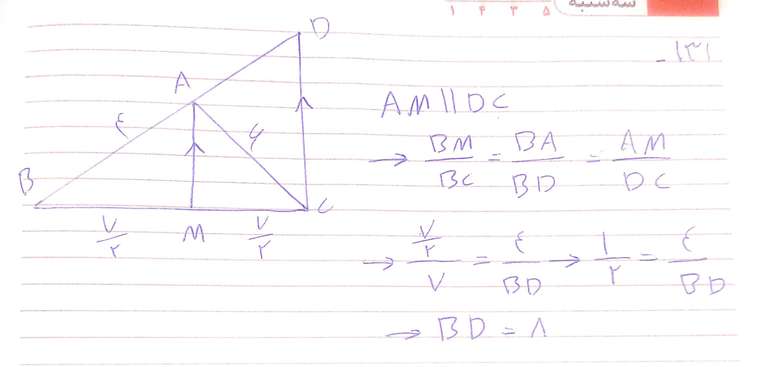 سه‌شنبه
۱ ۲ ۳ ۵
۱۳۱ -
D
A
۴
۶
B
C
۷/۲ M ۷/۲
AM || DC
→ BM/BC = BA/BD = AM/DC
→ (۷/۲)/۷ = ۴/BD → ۱/۲ = ۴/BD
→ BD = ۸